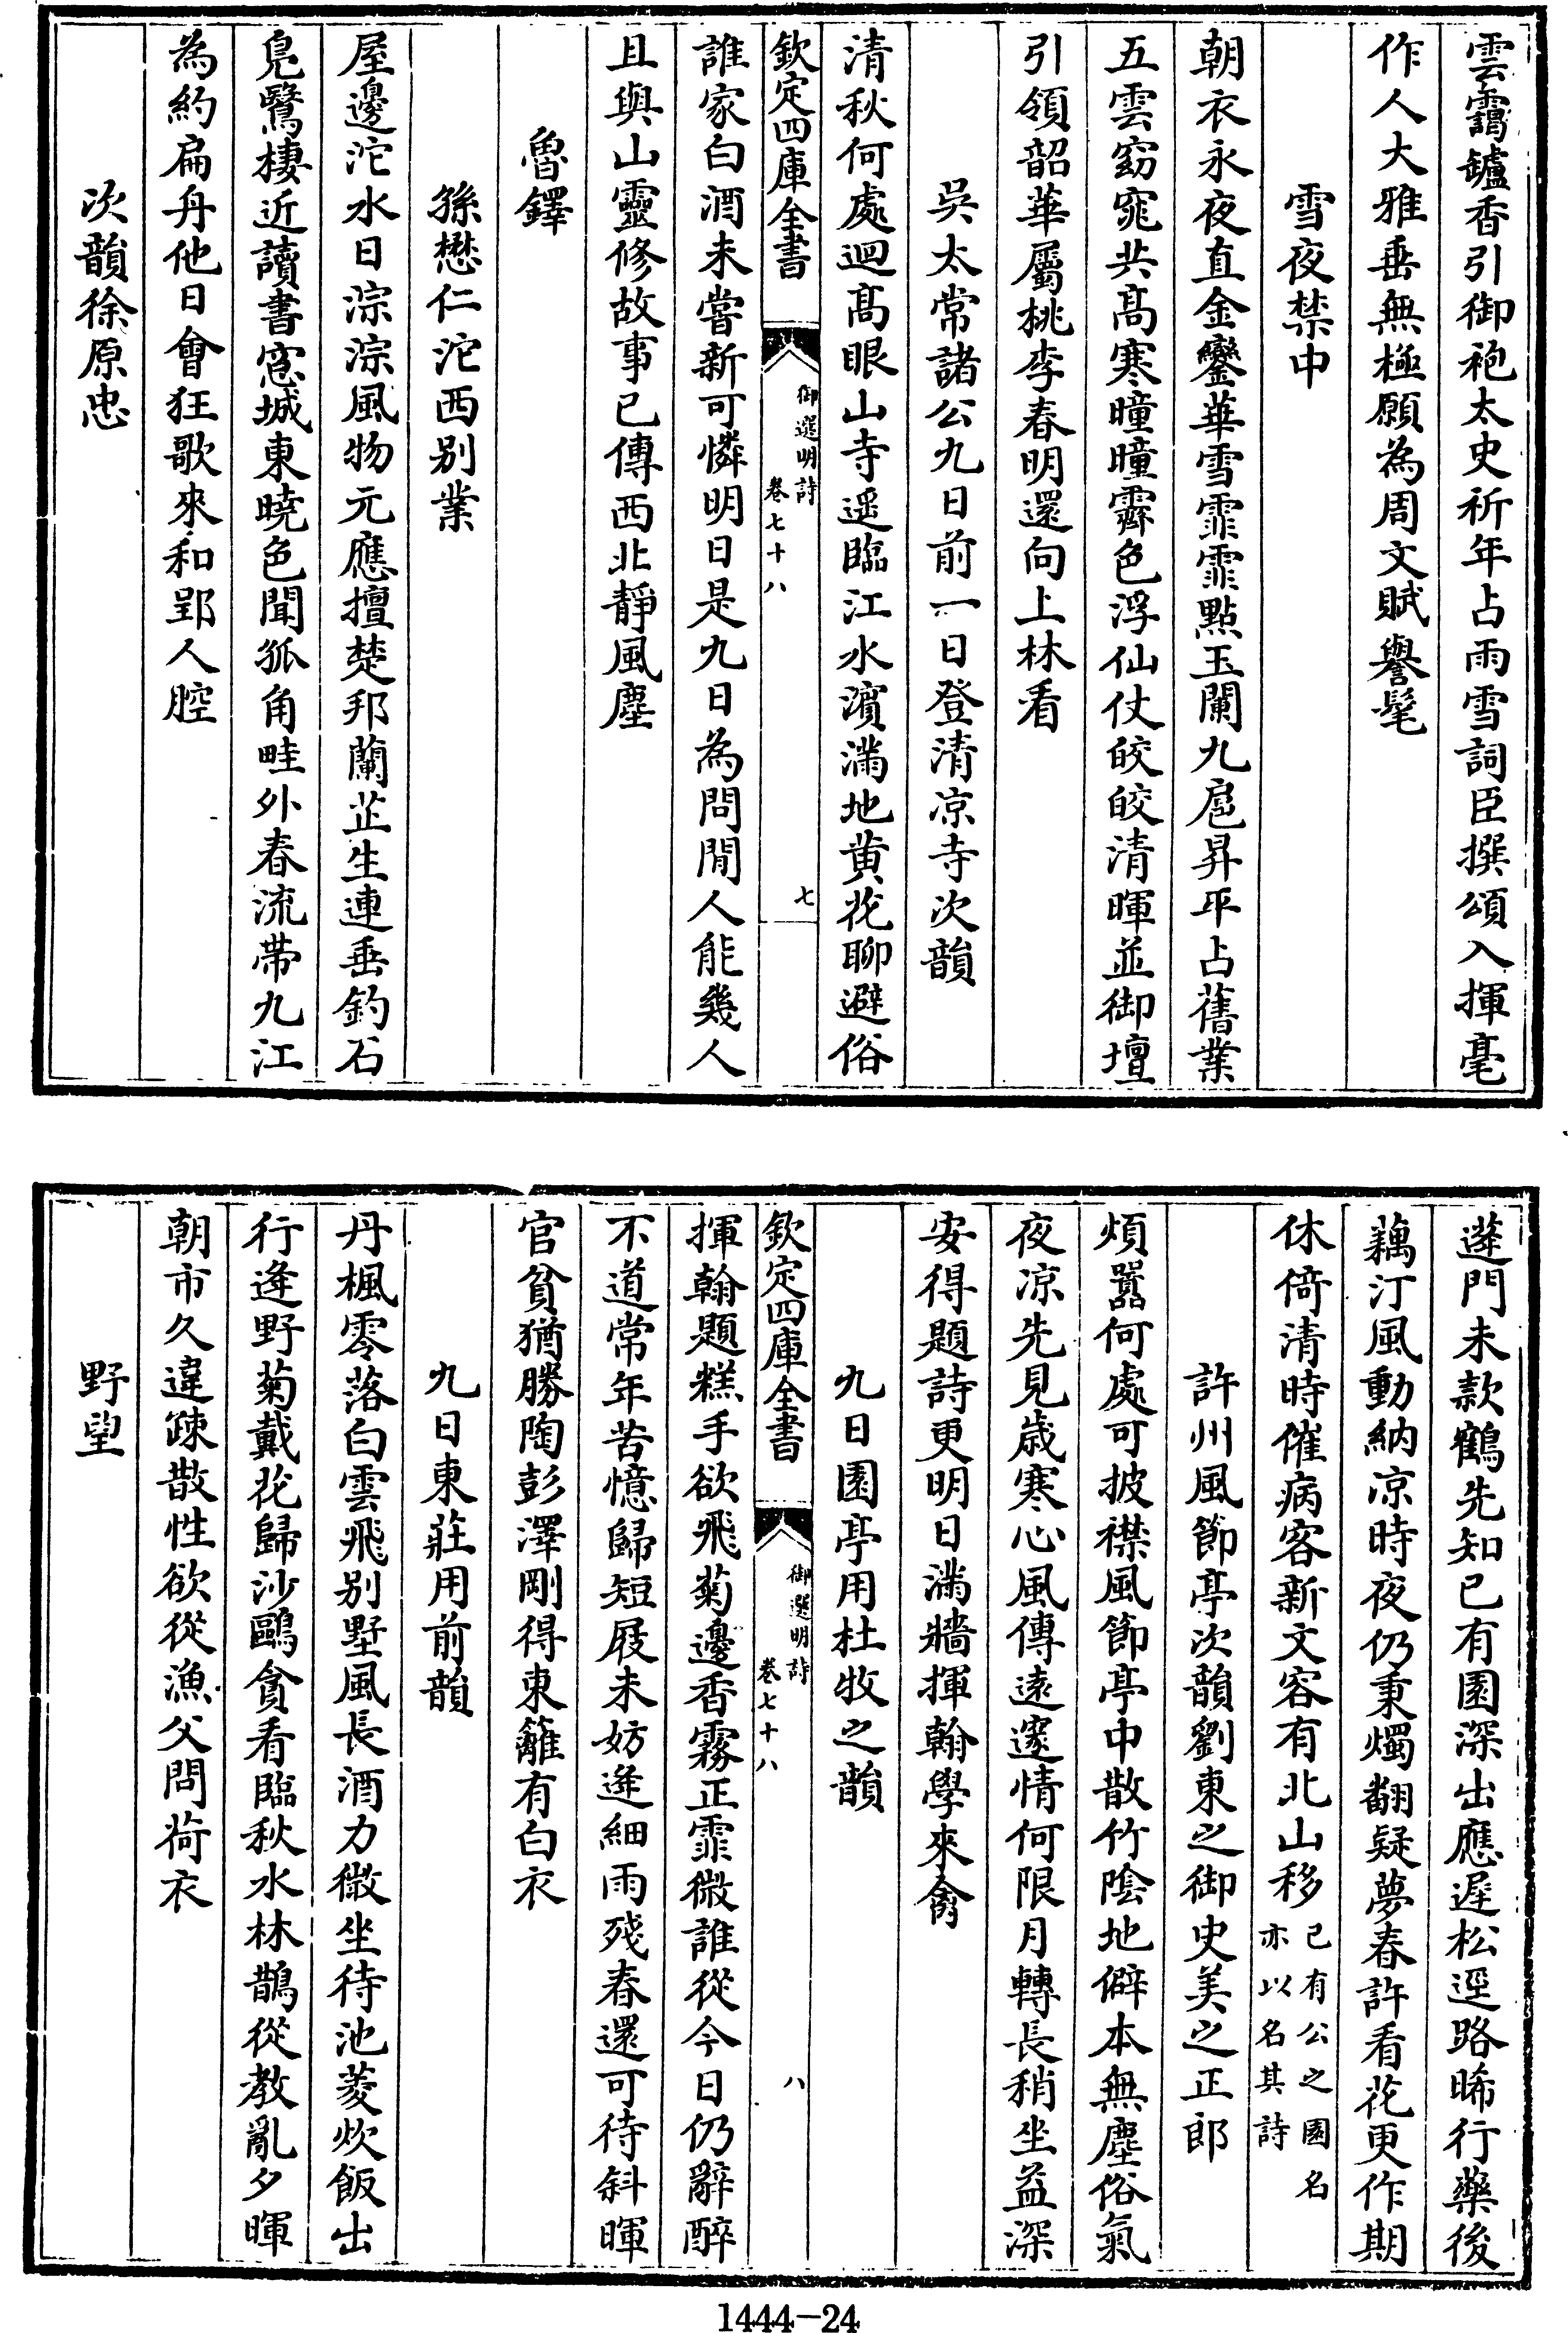 雲靄鑪香引御袍太史祈年占雨雪詞臣撰頌入揮毫
作人大雅垂無極願為周文賦譽髦
雪夜禁中
朝衣永夜直金鑾華雪霏霏點玉闌九扈昇平占舊業
五雲窈窕共髙寒曈曈霽色浮仙仗皎皎清暉並御壇
引領韶華屬桃李春明還向上林看
吳太常諸公九日前一日登清凉寺次韻
清秋何處迴髙眼山寺遥臨江水濵滿地黄花聊避俗
欽定四庫全書
御選明詩
卷七十八
七
誰家白酒未嘗新可憐明日是九日為問閒人能幾人
且與山靈修故事已傳西北靜風塵
魯鐸
孫懋仁沱西别業
屋邊沱水日淙淙風物元應擅楚邦蘭芷生連垂釣石
鳬鷺棲近讀書窓城東曉色聞狐角畦外春流帶九江
為約扁舟他日會狂歌來和郢人腔
次韻徐原忠
蓬門未款鶴先知已有園深出應遲松逕路晞行藥後
藕汀風動納凉時夜仍秉燭翻疑夢春許看花更作期
休倚清時催病客新文容有北山移
已有公之園名
亦以名其詩
許州風節亭次韻劉東之御史美之正郎
煩囂何處可披襟風節亭中散竹陰地僻本無塵俗氣
夜凉先見歲寒心風傳逺邃情何限月轉長稍坐益深
安得題詩更明日滿牆揮翰學來禽
九日園亭用杜牧之韻
欽定四庫全書
御選明詩
卷七十八
八
揮翰題糕手欲飛菊邊香霧正霏微誰從今日仍辭醉
不道常年苦憶歸短屐未妨逢細雨殘春還可待斜暉
官貧猶勝陶彭澤剛得東籬有白衣
九日東莊用前韻
丹楓零落白雲飛别墅風長酒力微坐待池菱炊飯出
行逢野菊戴花歸沙鷗貪看臨秋水林鵲從教亂夕暉
朝市久違踈散性欲從漁父問荷衣
野望
1444-24